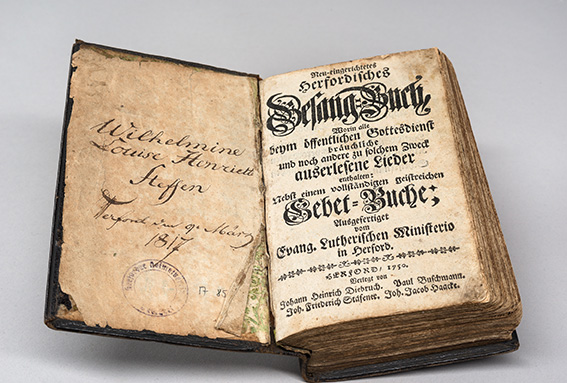 Wilhelmine
Louise Henriette
Steffen
Herford den 9. März
1817
17 85
Neu-eingerichtetes
Herfordisches
Gesang-Buch,
Worin alle
beym öffentlichen Gottesdienst
bräuchliche
und noch andere zu solchem Zweck
auserlesene Lieder
enthalten:
Nebst einem vollständigen geistreichen
Gebet-Buche;
Ausgefertiget
vom
Evang. Lutherischen Ministerio
in Herford.
HERFORD/ 1750.
Verlegt von
Johann Heinrich Diebruch. Paul Buschmann.
Joh. Friederich Stäsener. Joh. Jacob Haacke.